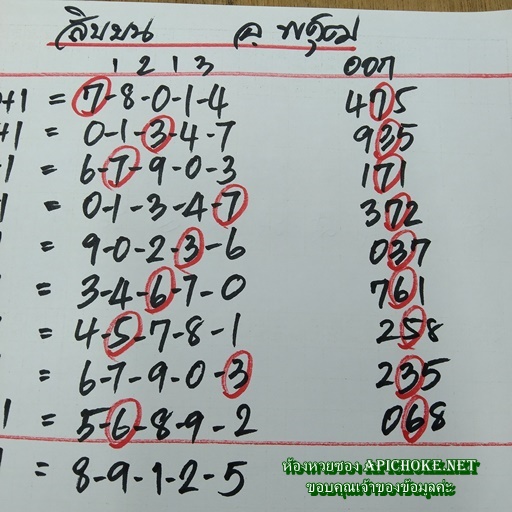 สิบบน
1 2 1 3 ออก
+1 = 7-8-0-1-4 475
+1 = 0-1-3-4-7 935
-1 = 6-7-9-0-3 171
1 = 0-1-3-4-7 372
= 9-0-2-3-6 037
= 3-4-6-7-0 761
= 4-5-7-8-1 258
= 6-7-9-0-3 235
1 = 5-6-8-9-2 068
= 8-9-1-2-5
ห้องหวยซอง APICHOKE.NET
ขอบคุณเจ้าของข้อมูลค่ะ